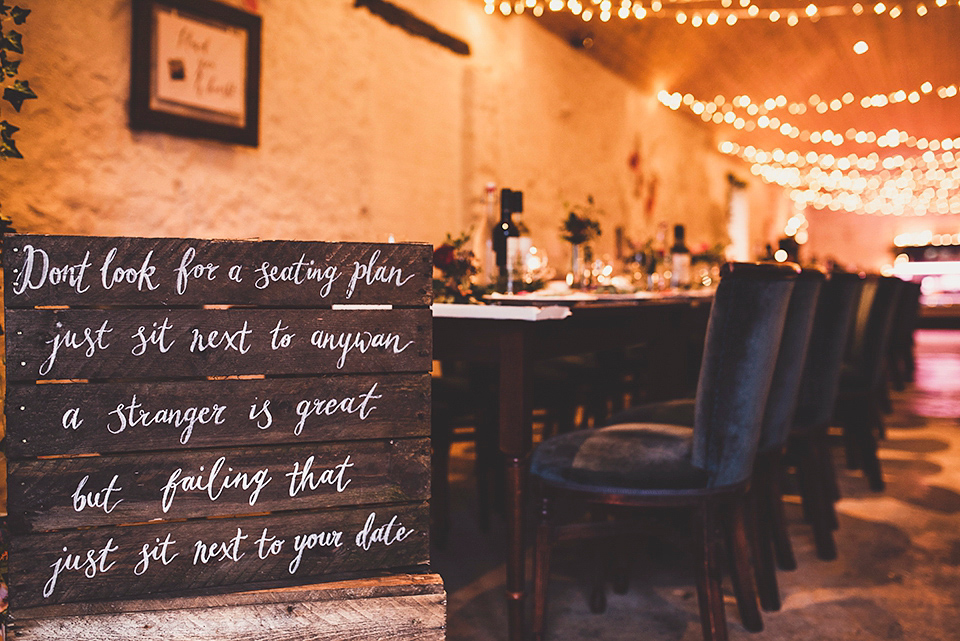 Dont look for a seating plan
just sit next to anywan
a stranger is great
but failing that
just sit next to your date